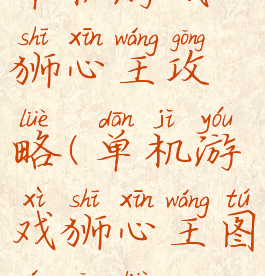 shī xīn wáng gōng
狮心王攻
lüè dān jī yóu
略(单机游
xì shī xīn wáng tú
戏狮心王图